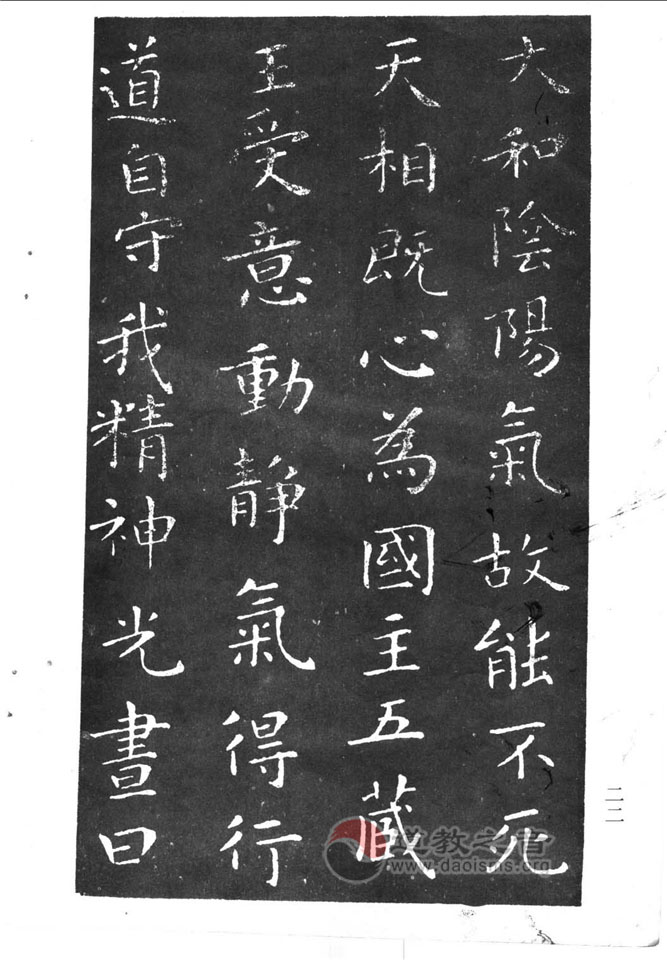 大和陰陽氣故能不死
天相既心為國主五蔵
王受意動静氣得行
道自守我精神光晝日
二二
道教之音
www.daoisms.org